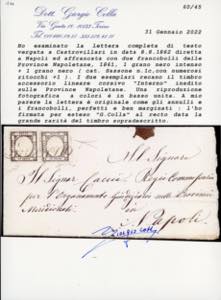 60/45
Dott. Giorgio Colla
31 Gennaio 2022
Ho esaminato la lettera completa di testo
vergata a Castrovillari in data 8.8.1862 diretta a
Napoli ed affrancata con due francobolli delle
Province Napoletane, 1861, 1 grano nero intenso
+ 1 grano nero / cat. Sassone n.1c, con numerosi
ritocchi +1 / I due esemplari recano il timbro
accessorio lineare corsivo "Interno" inedito
sulle Province Napoletane. Una riproduzione
fotografica a colori è in basso unita. A mio
parere la lettera è originale come gli annulli e
i francobolli, perfetti e ben marginati. L'ho
firmata per esteso "G.Colla" al recto data la
grande rarità del timbro sopradescritto.
All Signor
Il Signor
Napoli
Giorgio Colla